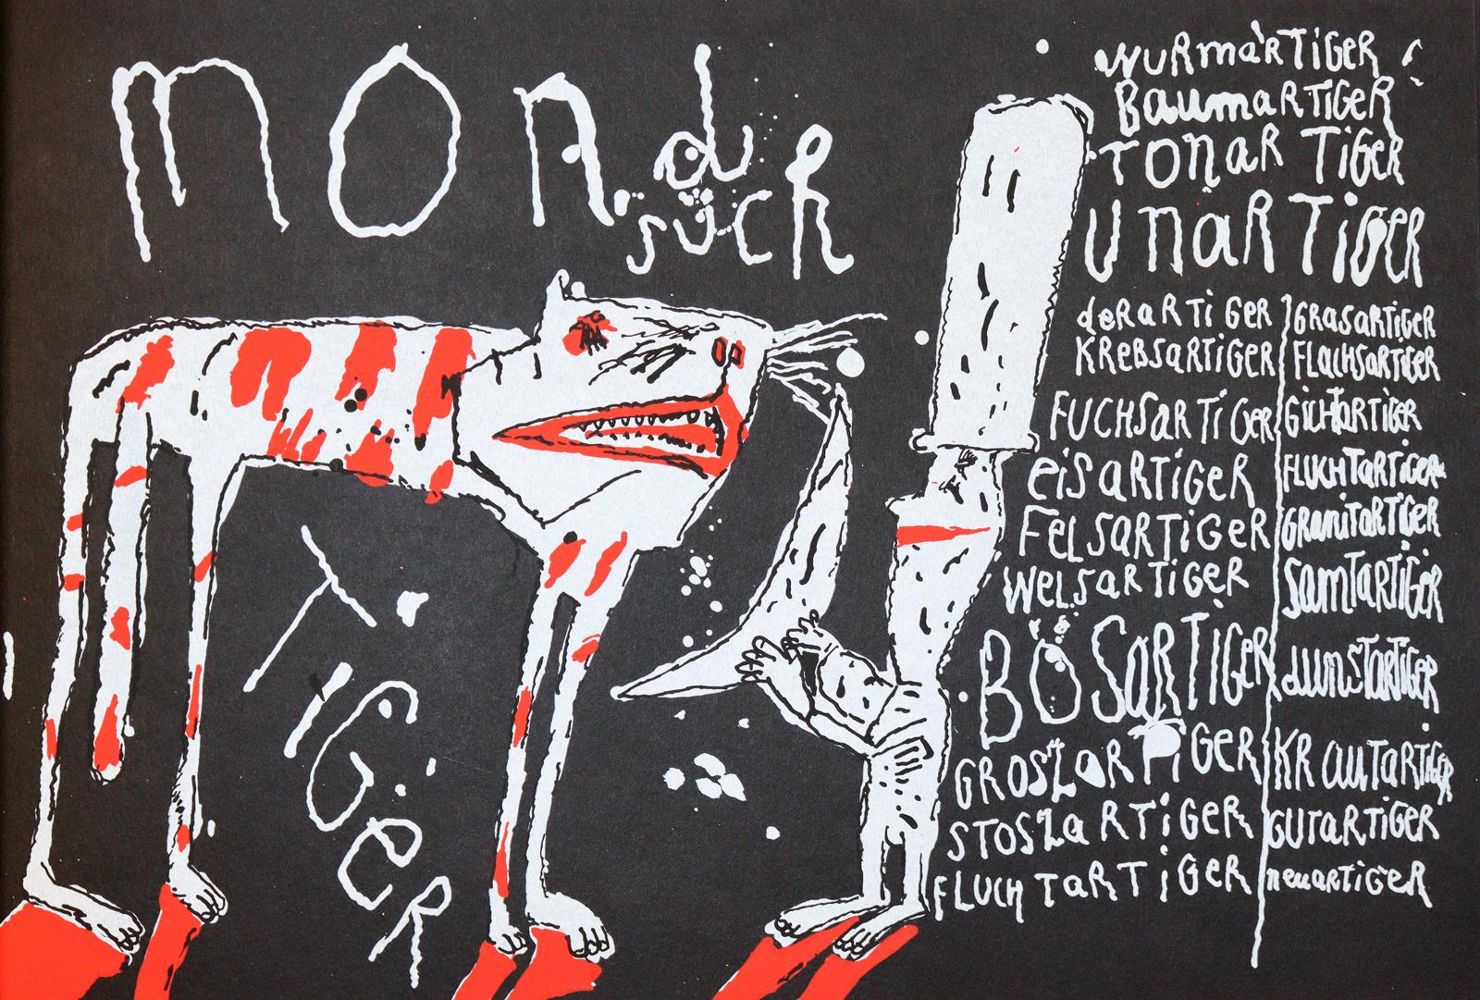 monD
süch
TiGeR
WURmaRTiGeR
BaumaRTiGeR
TONaR TiGeR
UNaRTiGeR
deRaRTiGeR
KReBSaRTiGeR
FUCHSaRTiGeR
eiSaRTiGeR
FeLSaRTiGeR
WeLSaRTiGeR
BÖSaRTiGeR
GROSZaRTiGeR
STOSZaRTiGeR
FLUCHTaRTiGeR
GRaSaRTiGeR
FLaCHSaRTiGeR
GiCHTaRTiGeR
FLUCHTaRTiGeR
GRaniTaRTiGeR
SamTaRTiGeR
dunSTaRTiGeR
KRauTaRTiGeR
GUTaRTiGeR
neuaRTiGeR